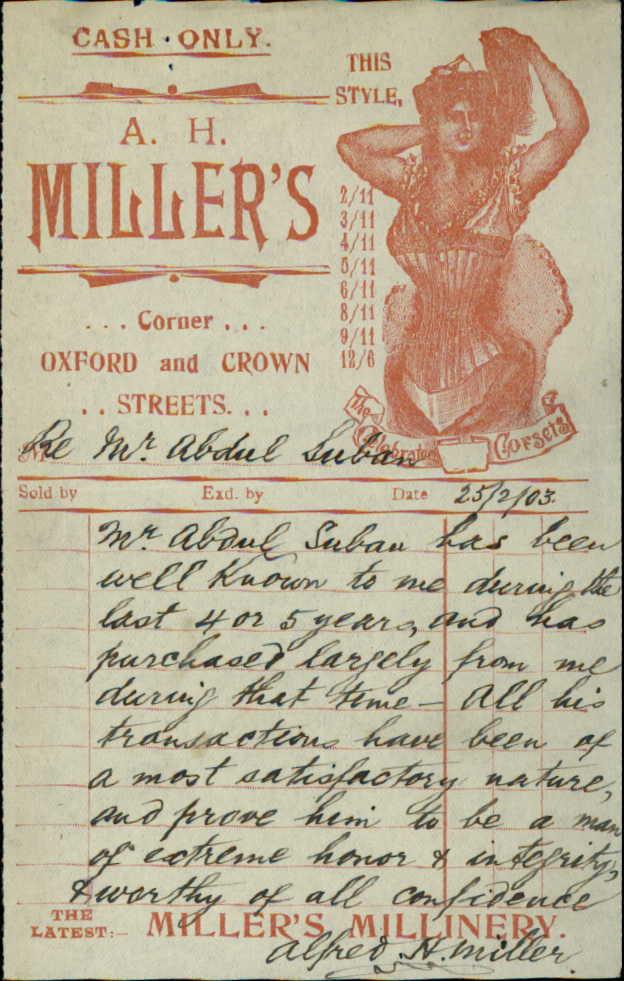 CASH · ONLY.
THIS
STYLE,
A. H.
MILLER'S
2/11
3/11
4/11
5/11
6/11
8/11
9/11
12/6
. . . Corner . . .
OXFORD and CROWN
. . STREETS. . .
The Celebrated Corsets
Re Mr. Abdul Suban
Sold by Exd. by Date 25/2/03.
Mr. Abdul Suban has been
well known to me during the
last 4 or 5 years, and has
purchased largely from me
during that time – All his
transactions have been of
a most satisfactory nature,
and prove him to be a man
of extreme honor & integrity,
& worthy of all confidence
THE
LATEST:– MILLER'S MILLINERY.
Alfred H. Miller.